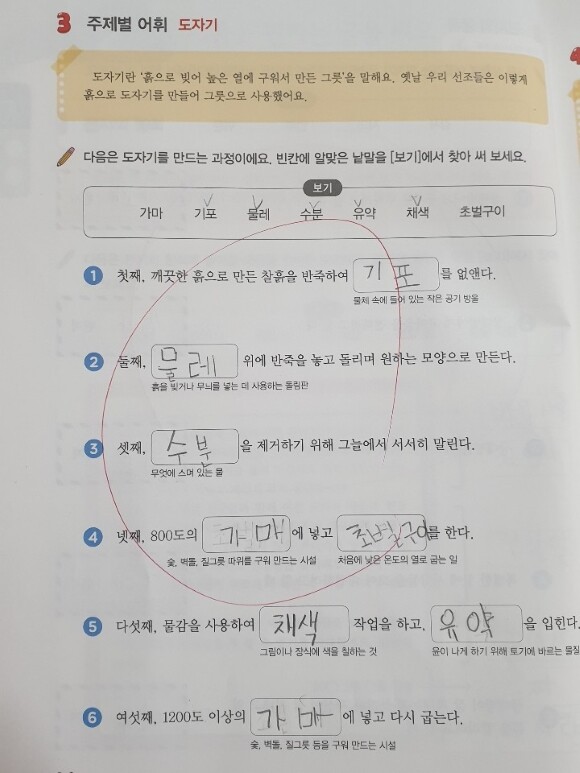 3 주제별 어휘 도자기
도자기란 '흙으로 빚어 높은 열에 구워서 만든 그릇'을 말해요. 옛날 우리 선조들은 이렇게
흙으로 도자기를 만들어 그릇으로 사용했어요.
다음은 도자기를 만드는 과정이에요. 빈칸에 알맞은 낱말을 [보기]에서 찾아 써 보세요.
보기
가마 기포 물레 수분 유약 채색 초벌구이
1 첫째, 깨끗한 흙으로 만든 찰흙을 반죽하여 기포 를 없앤다.
물체 속에 들어 있는 작은 공기 방울
2 둘째, 물레 위에 반죽을 놓고 돌리며 원하는 모양으로 만든다.
흙을 빚거나 무늬를 넣는 데 사용하는 돌림판
3 셋째, 수분 을 제거하기 위해 그늘에서 서서히 말린다.
무엇에 스며 있는 물
4 넷째, 800도의 가매 에 넣고 초벌구이 를 한다.
숯, 벽돌, 질그릇 따위를 구워 만드는 시설 처음에 낮은 온도의 열로 굽는 일
5 다섯째, 물감을 사용하여 채색 작업을 하고, 유약 을 입힌다.
그림이나 장식에 색을 칠하는 것 윤이 나게 하기 위해 토기에 바르는 물질
6 여섯째, 1200도 이상의 가매 에 넣고 다시 굽는다.
숯, 벽돌, 질그릇 등을 구워 만드는 시설